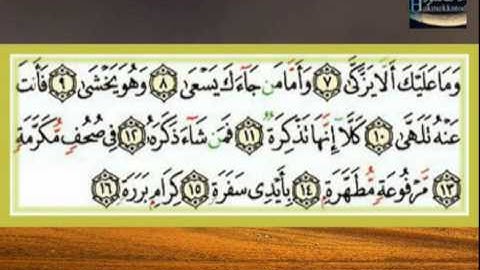 وَمَا عَلَيْكَ أَلَّا يَزَّكَّىٰ ٧ وَأَمَّا مَن جَآءَكَ يَسْعَىٰ ٨ وَهُوَ يَخْشَىٰ ٩ فَأَنتَ
عَنْهُ تَلَهَّىٰ ١٠ كَلَّآ إِنَّهَا تَذْكِرَةٌ ١١ فَمَن شَآءَ ذَكَرَهُۥ ١٢ فِى صُحُفٍ مُّكَرَّمَةٍ
١٣ مَّرْفُوعَةٍ مُّطَهَّرَةٍۭ ١٤ بِأَيْدِى سَفَرَةٍ ١٥ كِرَامٍۭ بَرَرَةٍ ١٦